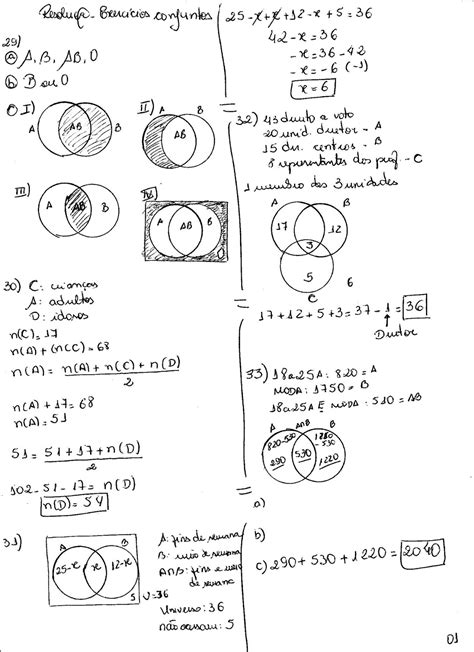 Resolução - Exercícios conjuntos
29)
a) A, B, AB, O
b) B ou O
c) I)
A
AB
B
II)
A
AB
B
III)
A
AB
B
IV)
A
AB
B
30) C: crianças
A: adultos
D: idosos
n(C) = 17
n(A) + (n(C) = 68
n(A) = n(A) + n(C) + n(D)
2
n(A) + 17 = 68
n(A) = 51
51 = 51 + 17 + n(D)
2
102 - 51 - 17 = n(D)
n(D) = 54
31)
A
B
25-x
x
12-x
5
U=36
A: fins de semana
B: meio de semana
A∩B: fins e meio
de semana
Universo: 36
não acessam: 5
25 - x + x + 12 - x + 5 = 36
42 - x = 36
-x = 36 - 42
-x = -6 (-1)
x = 6
32) 43 direito a voto
20 unid. diretor - A
15 dir. centros - B
8 representantes dos prof. - C
1 membro das 3 unidades
A
B
17
12
3
5
C
6
17 + 12 + 5 + 3 = 37 - 1 = 36
Diretor
33) 18 a 25 A: 820 = A
MODA: 1750 = B
18 a 25 A E MODA: 530 = AB
A
A∩B
B
820-530
290
530
1750
-530
1220
a)
b)
c) 290 + 530 + 1220 = 2040
01